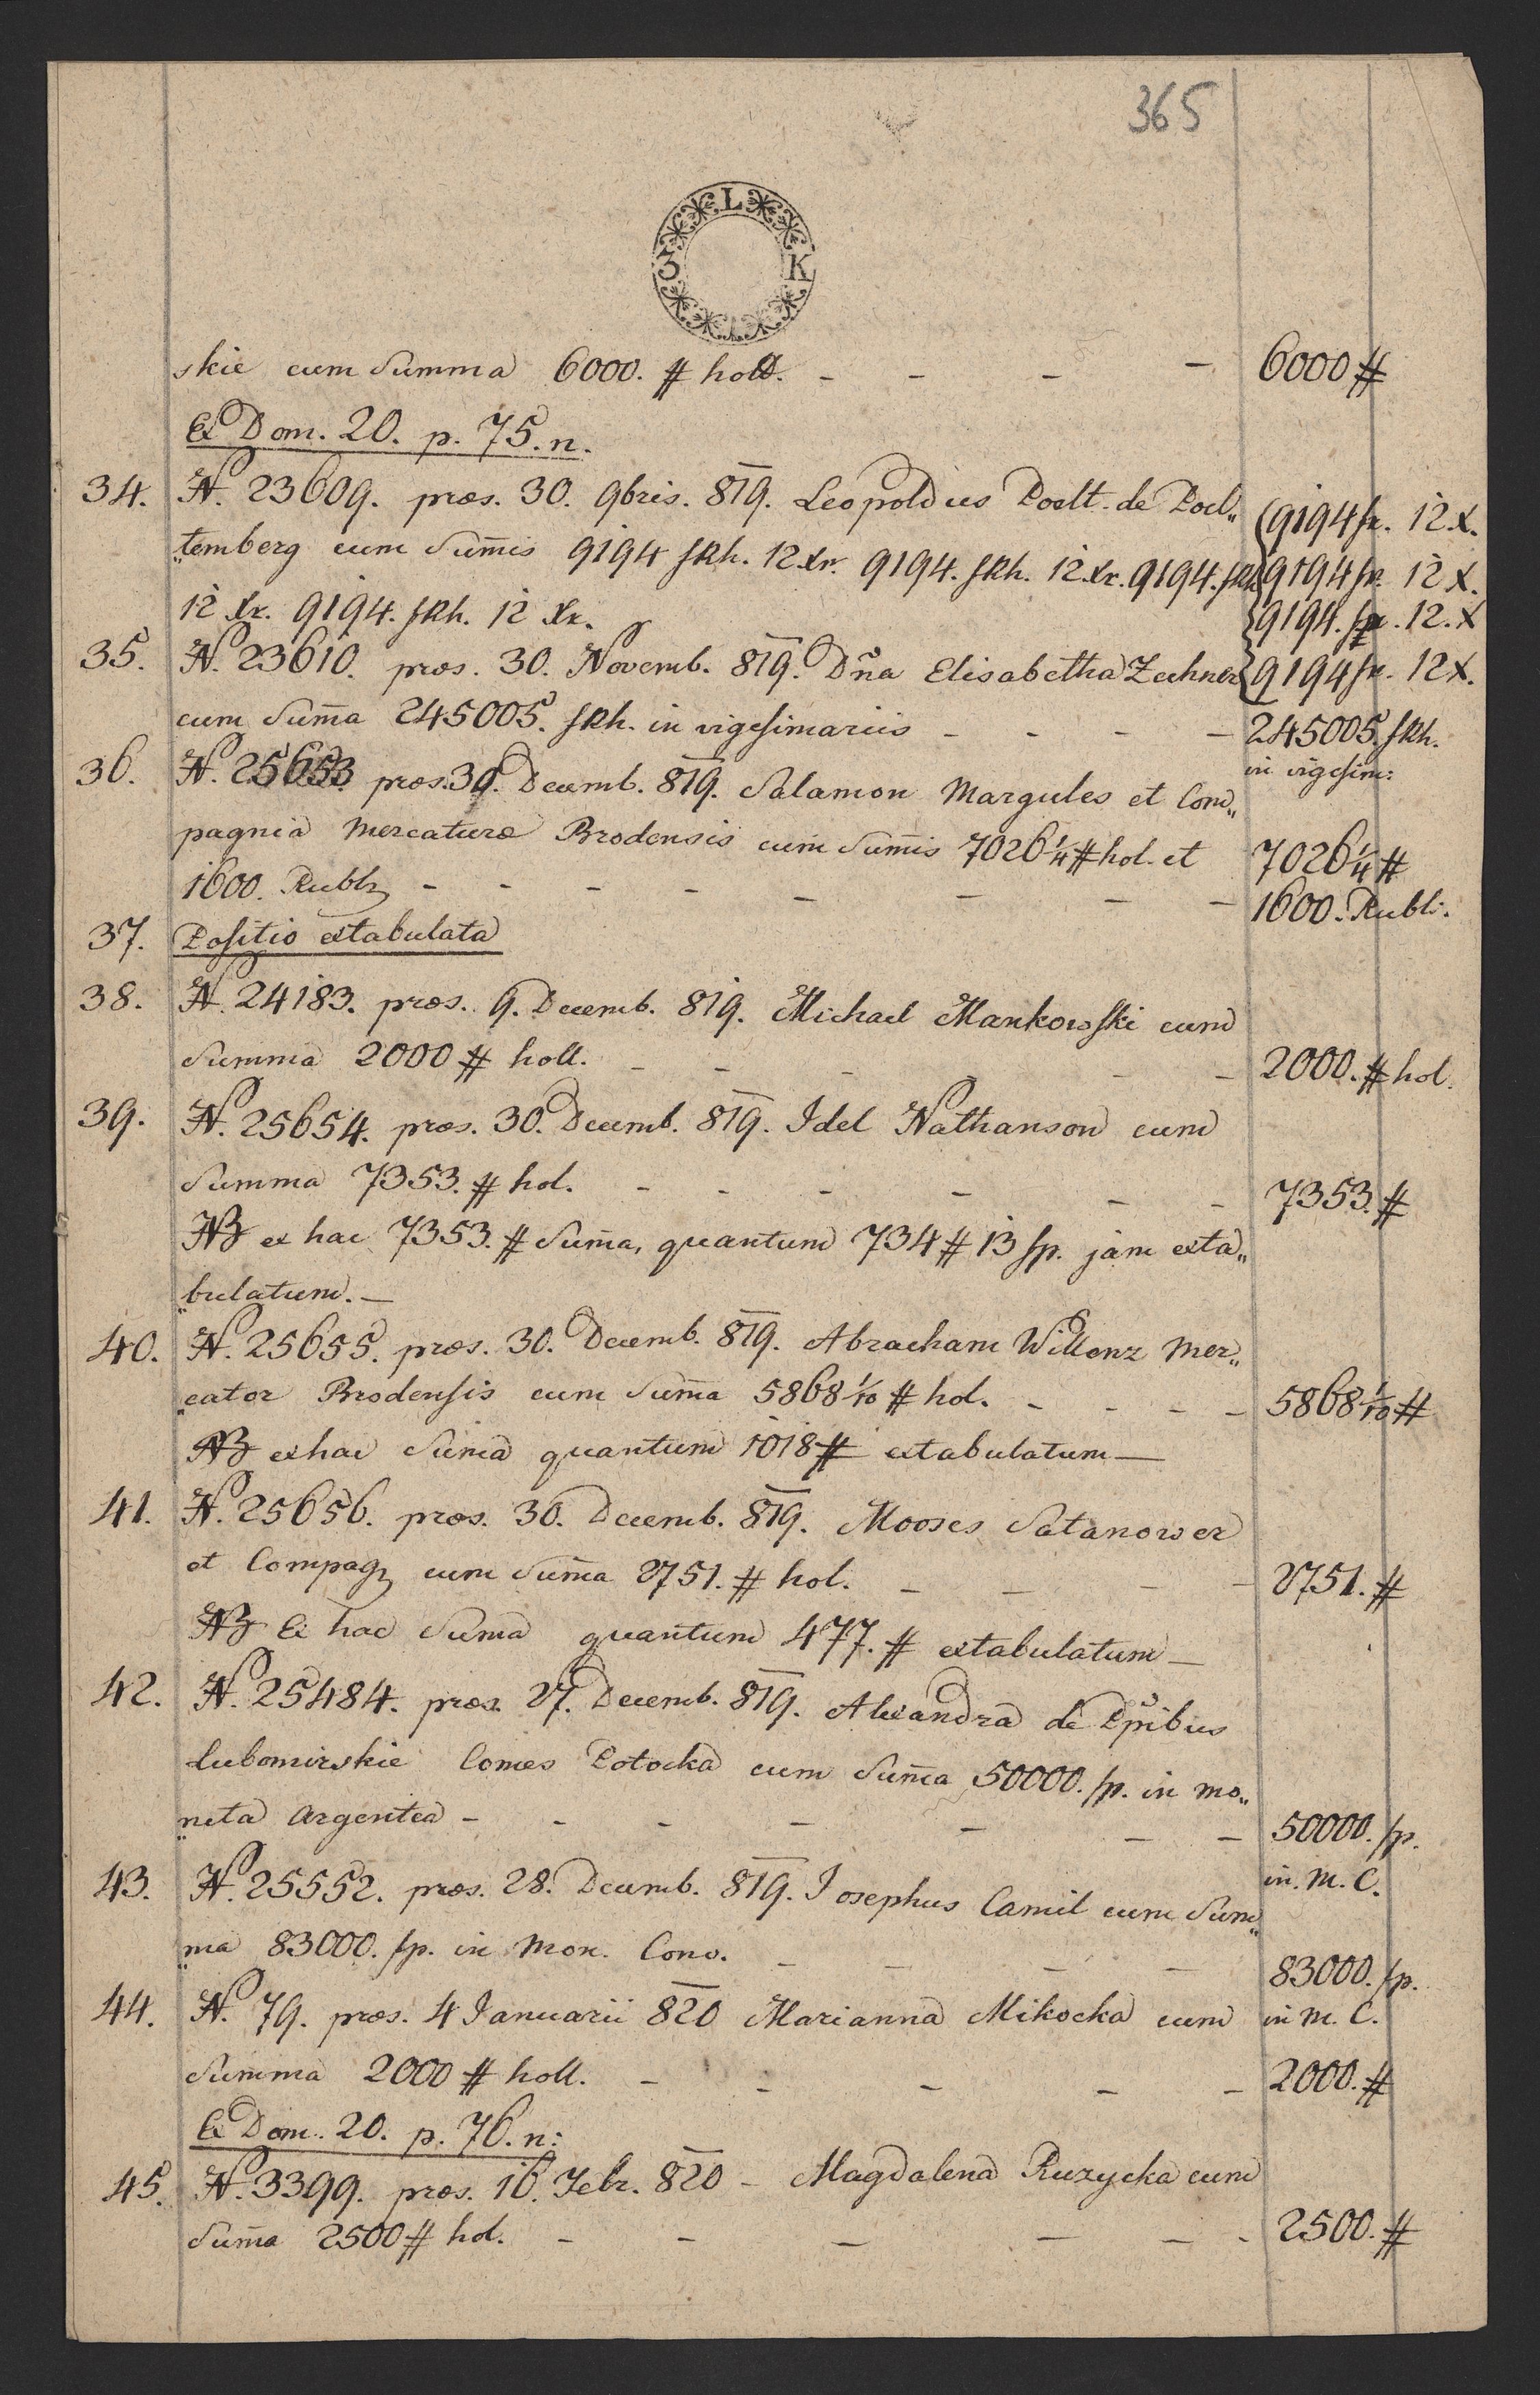 365
L
3 K
skie cum Summa 6000. # holl. - - - - 6000 #
Ex Dom. 20. p. 75. n.
34. N. 23609. præs. 30. 9bris. 819. Leopoldus Poelt. de Poel„ 9194 fr. 12. X.
„temberg cum Sum̄is 9194 fRh. 12 Xr. 9194. fRh. 12 Xr. 9194. fRh 9194 fr. 12 X.
12 Xr. 9194. fRh. 12 Xr. 9194. fr. 12. X
35. N. 23610. præs. 30. Novemb. 819. Dn̄a Elisabetha Zechner 9194 fr. 12 X.
cum Sum̄a 245005. fRh. in vigesimariis - - - - 245005. fRh.
in vigesim:
36. N. 25653 præs. 30. Decemb. 819. Salamon Margules et Com„
pagnia Mercaturæ Brodensis cum Sum̄is 7026 1/4 # hol. et 7026 1/4 #
1600. Rubl - - - - - - - - 1600. Rubli.
37. Positio extabulata
38. N. 24183. præs. 9. Decemb. 819. Michael Mankowski cum
Summa 2000 # holl. - - - - - 2000. # hol.
39. N. 25654. præs. 30. Decemb. 819. Idel Nathanson cum
Summa 7353. # hol. - - - - - - 7353. #
NB ex hac 7353. # Sum̄a, quantum 734 # 13 fp. jam exta„
„bulatum. —
40. N. 25655. præs. 30. Decemb. 819. Abracham Willonz Mer„
„cator Brodensis cum Sum̄a 5868 1/10 # hol. - - - - 5868 1/10 #
NB ex hac Sum̄a quantum 1018 # extabulatum —
41. N. 25656. præs. 30. Decemb. 819. Mooses Satanower
et Compag cum Sum̄a 2751. # hol. - - - - 2751. #
NB Ex hac Sum̄a quantum 477. # extabulatum —
42. N. 25484. præs. 27. Decemb. 819. Alexandra de Ppibus
Lubomirskie Comes Potocka cum Sum̄a 50000. fp. in mo„
„neta Argentea - - - - - - - 50000. fp.
in. M. C.
43. N. 25552. præs. 28. Decemb. 819. Josephus Camil cum Sum„
„ma 83000. fp. in Mon. Conv. - - - - 83000. fp.
44. N. 79. præs. 4 Januarii 820 Marianna Mikocka cum in M. C.
Summa 2000 # holl. - - - - - 2000. #
Ex Dom. 20. p. 76. n:
45. N. 3399. præs. 16. Febr. 820 - Magdalena Ruzycka cum
Sum̄a 2500 # hol. - - - - - - 2500. #